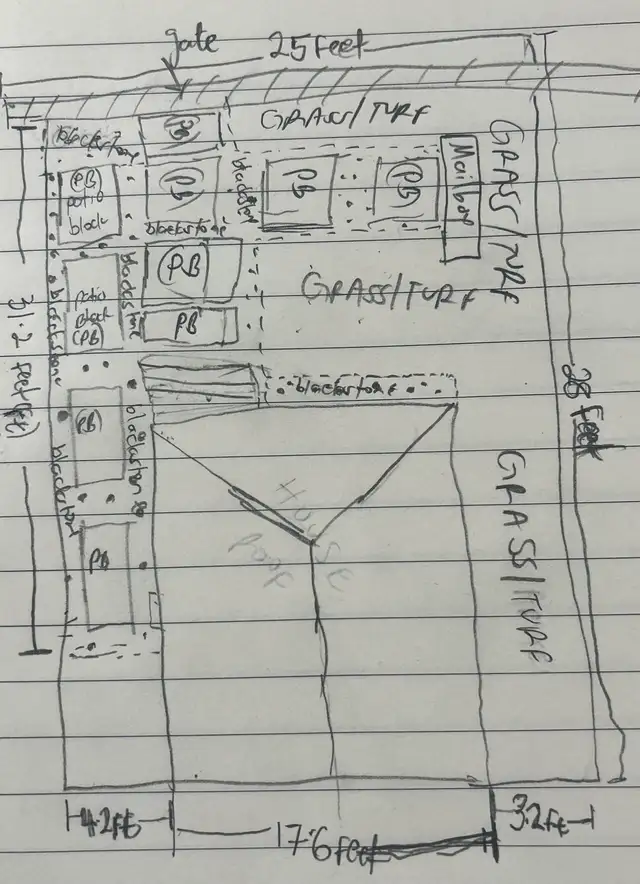 gate
25 feet
GRASS/TURF
blackstone
PB
PB
patio
block
PB
blackstone
PB
PB
Mailbox
GRASS/TURF
blackstone
PB
GRASS/TURF
patio
block
(PB)
blackstone
PB
blackstone
31.2 feet(ft)
28 feet
blackstone
PB
blackstone
blackstone
HOUSE
ROOF
GRASS/TURF
PB
4.2ft
17.6 feet
3.2ft